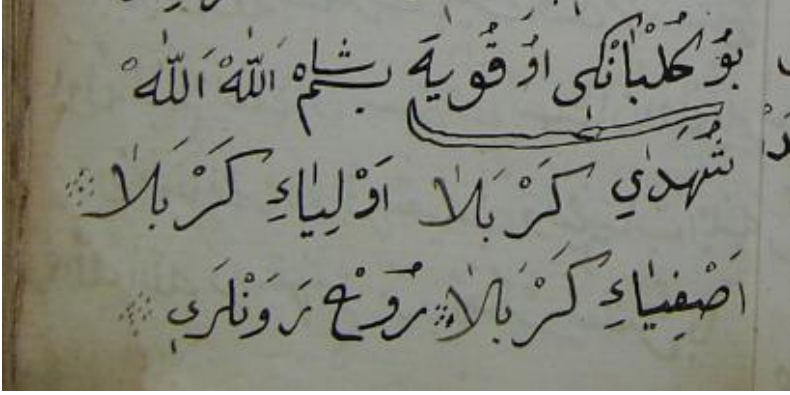 بُو كُلْبٰانْكِى اوُقُويَة بِسْمِ شاه اَللّٰهْ اَللّٰهْ
شُهَدٰايِ كَرْبَلاٰ اَوْلِيٰاءِ كَرْبَلاٰ
اَصْفِيٰاءِ كَرْبَلاٰ رُوحْ رَوَنْلَرِي